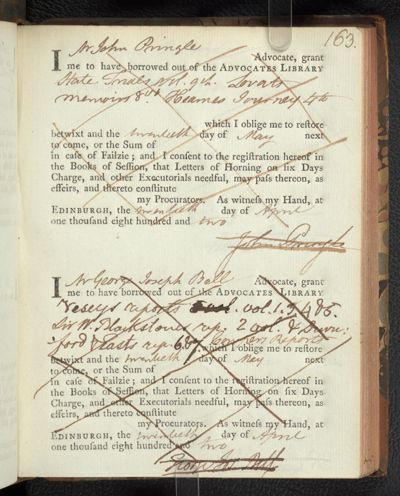 163.
I Mr John Pringle Advocate, grant
me to have borrowed out of the ADVOCATES LIBRARY
State Trials Vol. 9th. Lovats
memoirs 8vo Hearnes Journey 4to
which I oblige me to reſtore
betwixt and the twentieth day of May next
to come, or the Sum of
in caſe of Failzie; and I conſent to the regiſtration hereof in
the Books of Seſſion, that Letters of Horning on ſix Days
Charge, and other Executorials needful, may paſs thereon, as
effeirs, and thereto conſtitute
my Procurators. As witneſs my Hand, at
EDINBURGH, the twentieth day of April
one thouſand eight hundred and two
John Pringle
I Mr George Joseph Bell Advocate, grant
me to have borrowed out of the ADVOCATES LIBRARY
Veseys reports vol. 1. 3 4 & 5.
Sir W. Blackstones rep. 2 vol. &
rep. Reports which I oblige me to reſtore
betwixt and the twentieth day of May next
to come, or the Sum of
in caſe of Failzie; and I conſent to the regiſtration hereof in
the Books of Seſſion, that Letters of Horning on ſix Days
Charge, and other Executorials needful, may paſs thereon, as
effeirs, and thereto conſtitute
my Procurators. As witneſs my Hand, at
EDINBURGH, the twentieth day of April
one thouſand eight hundred and two
George Jos. Bell